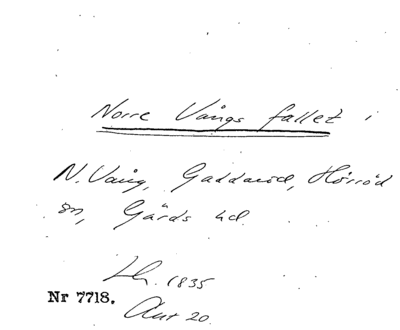 Norre Vångs fallet i
N. Vång, Gaddaröd, Hörröd
sn, Gärds hd.
Lh. 1835
Nr 7718.
Ant 20.